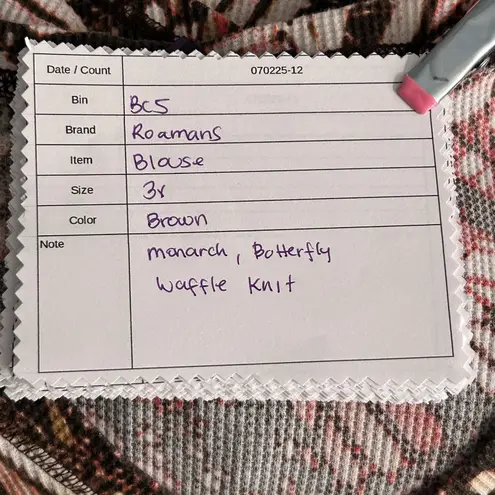 Date / Count 070225-12
Bin BC5
Brand Roamans
Item Blouse
Size 3x
Color Brown
Note monarch, Botterfly
waffle Knit